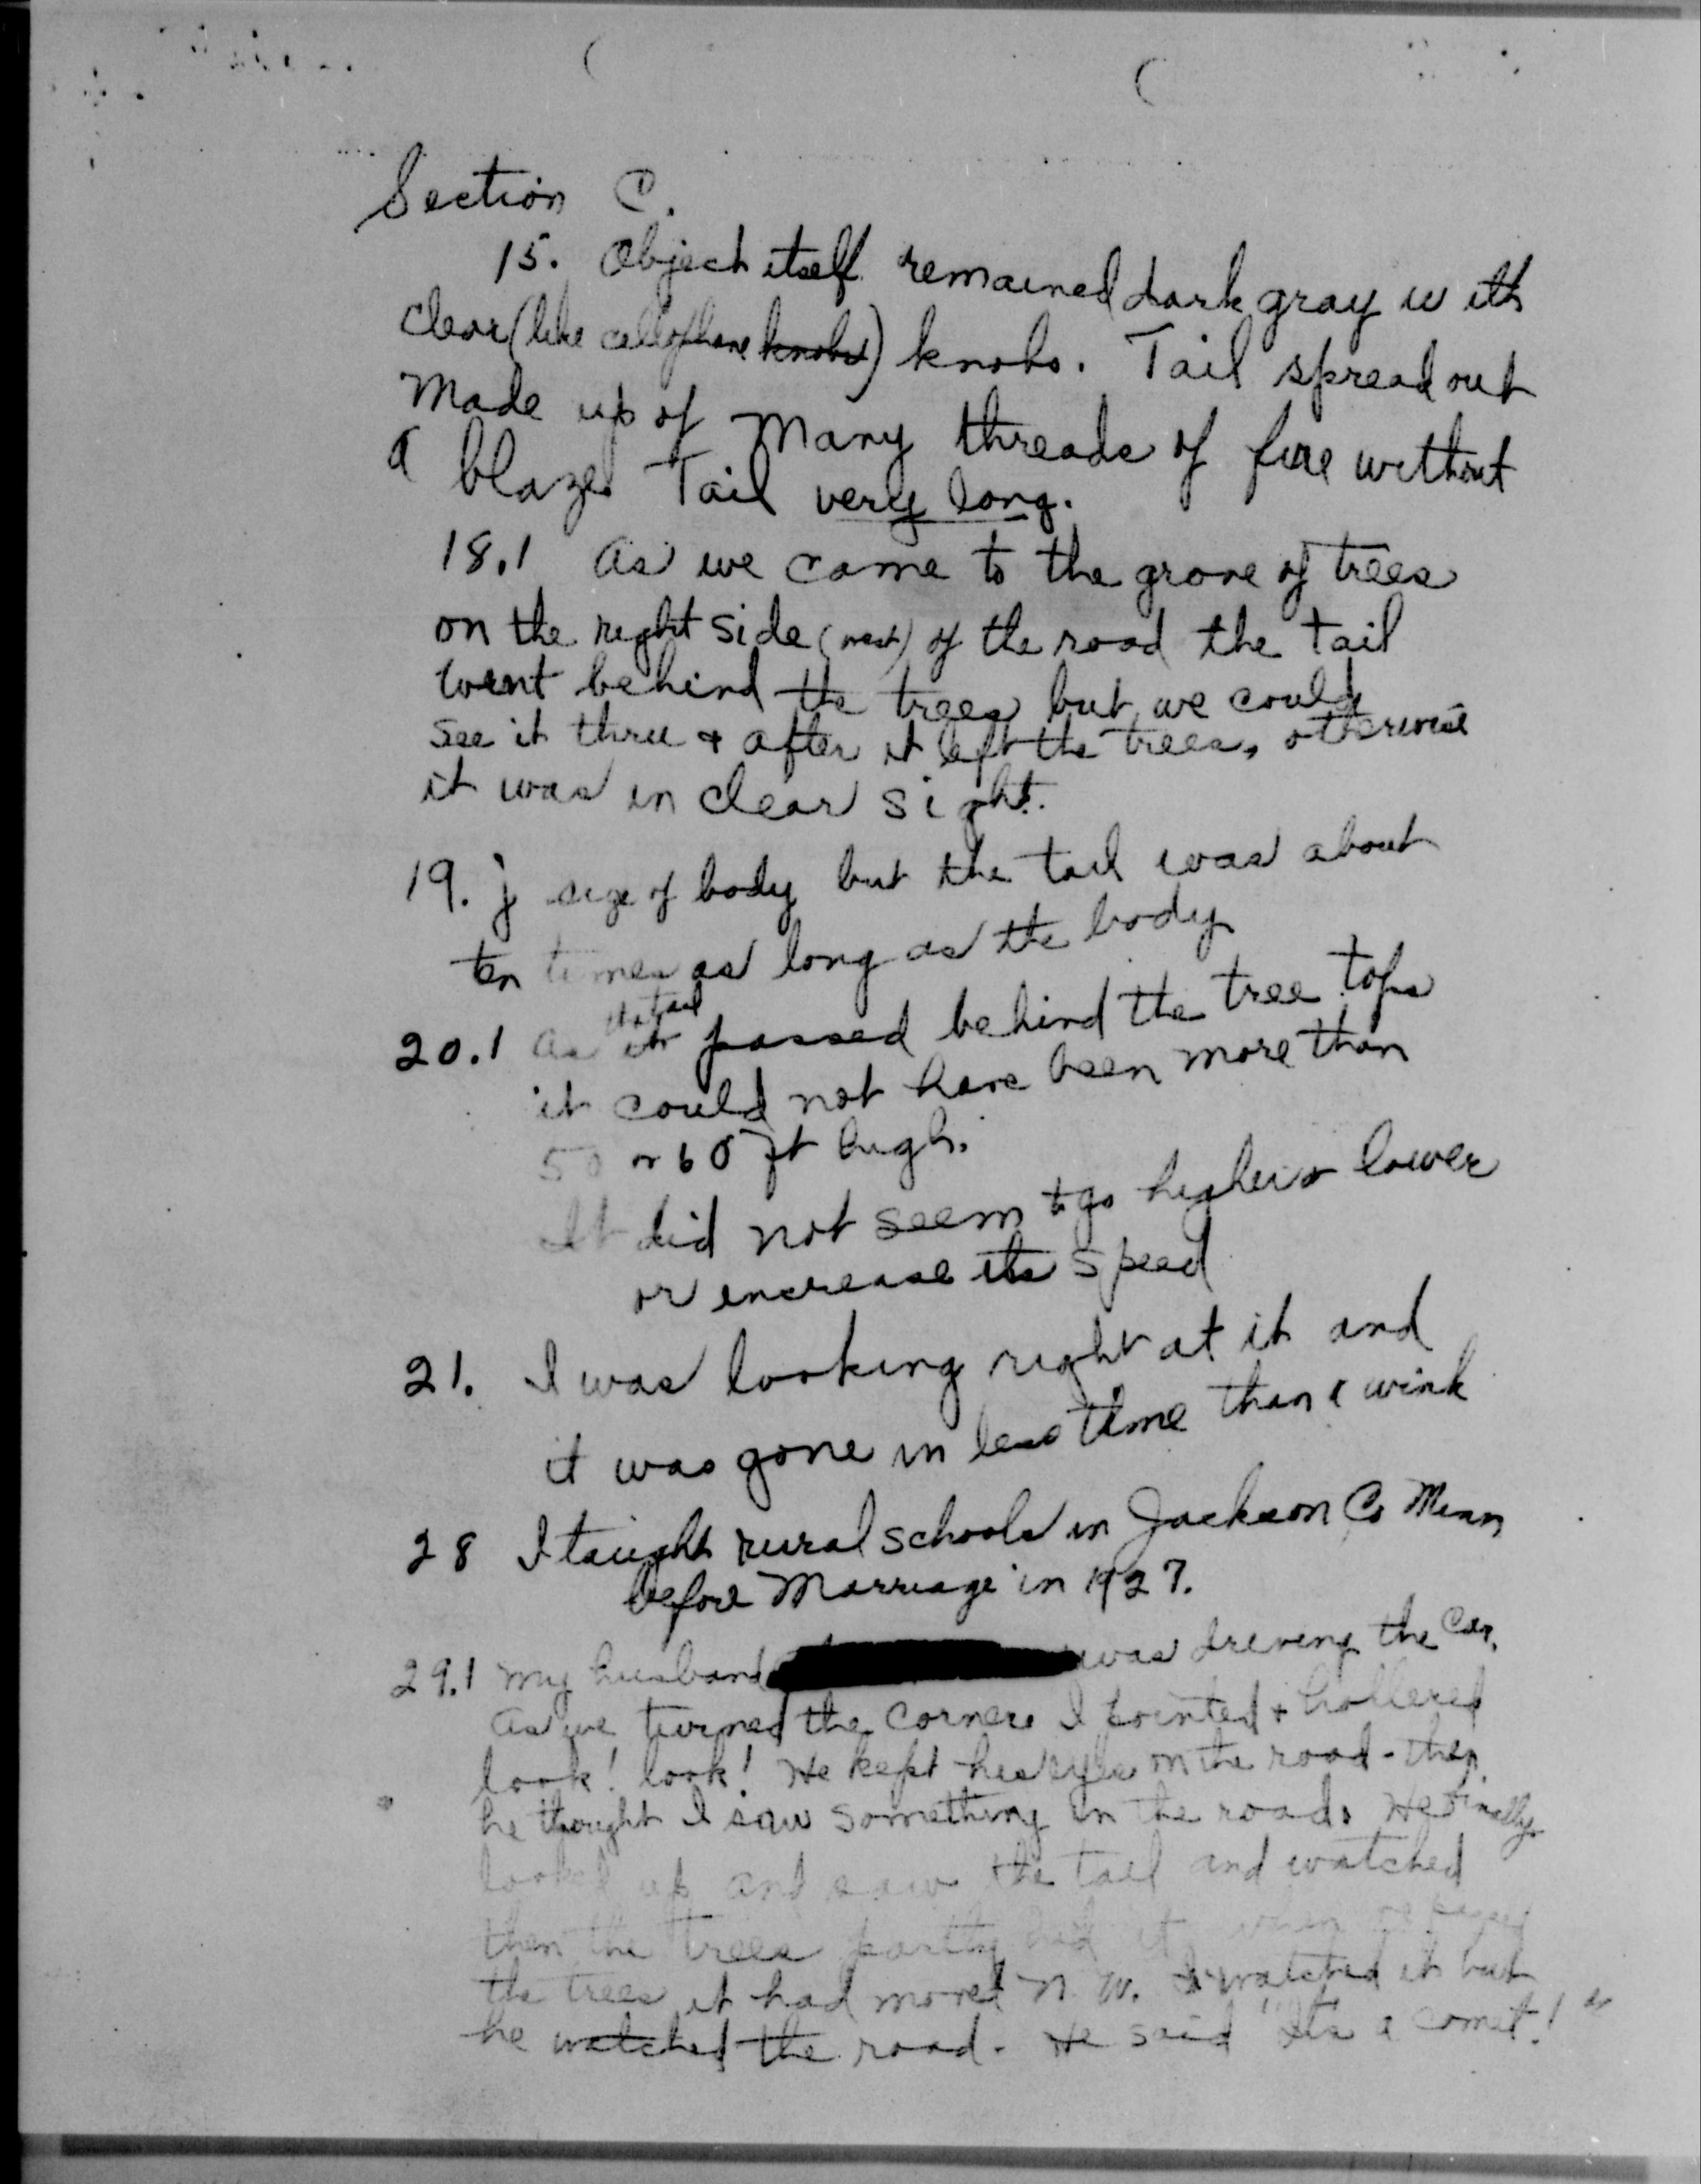 Section C.
15. Object itself remained dark gray with
clear (like cellophane knobs) knobs. Tail spread out
made up of many threads of fire without
a blaze. Tail very long.
18.1 As we came to the grove of trees
on the right side (west) of the road the tail
went behind the trees but we could
see it thru & after it left the trees, otherwise
it was in clear sight.
19. j size of body but the tail was about
ten times as long as the body
the tail
20.1 As it passed behind the tree tops
it could not have been more than
50 or 60 ft high.
It did not seem to go higher or lower
or increase its speed
21. I was looking right at it and
it was gone in less time than a wink
28 I taught rural schools in Jackson Co Minn
before Marriage in 1927.
29.1 My husband was driving the car.
As we turned the corner I pointed & hollered
look! look! He kept his eyes on the road - then
he thought I saw something in the road. He finally
looked up and saw the tail and watched
then the trees partly hid it when we passed
the trees it had moved N.W. I watched it but
he watched the road. He said "It's a comet!"